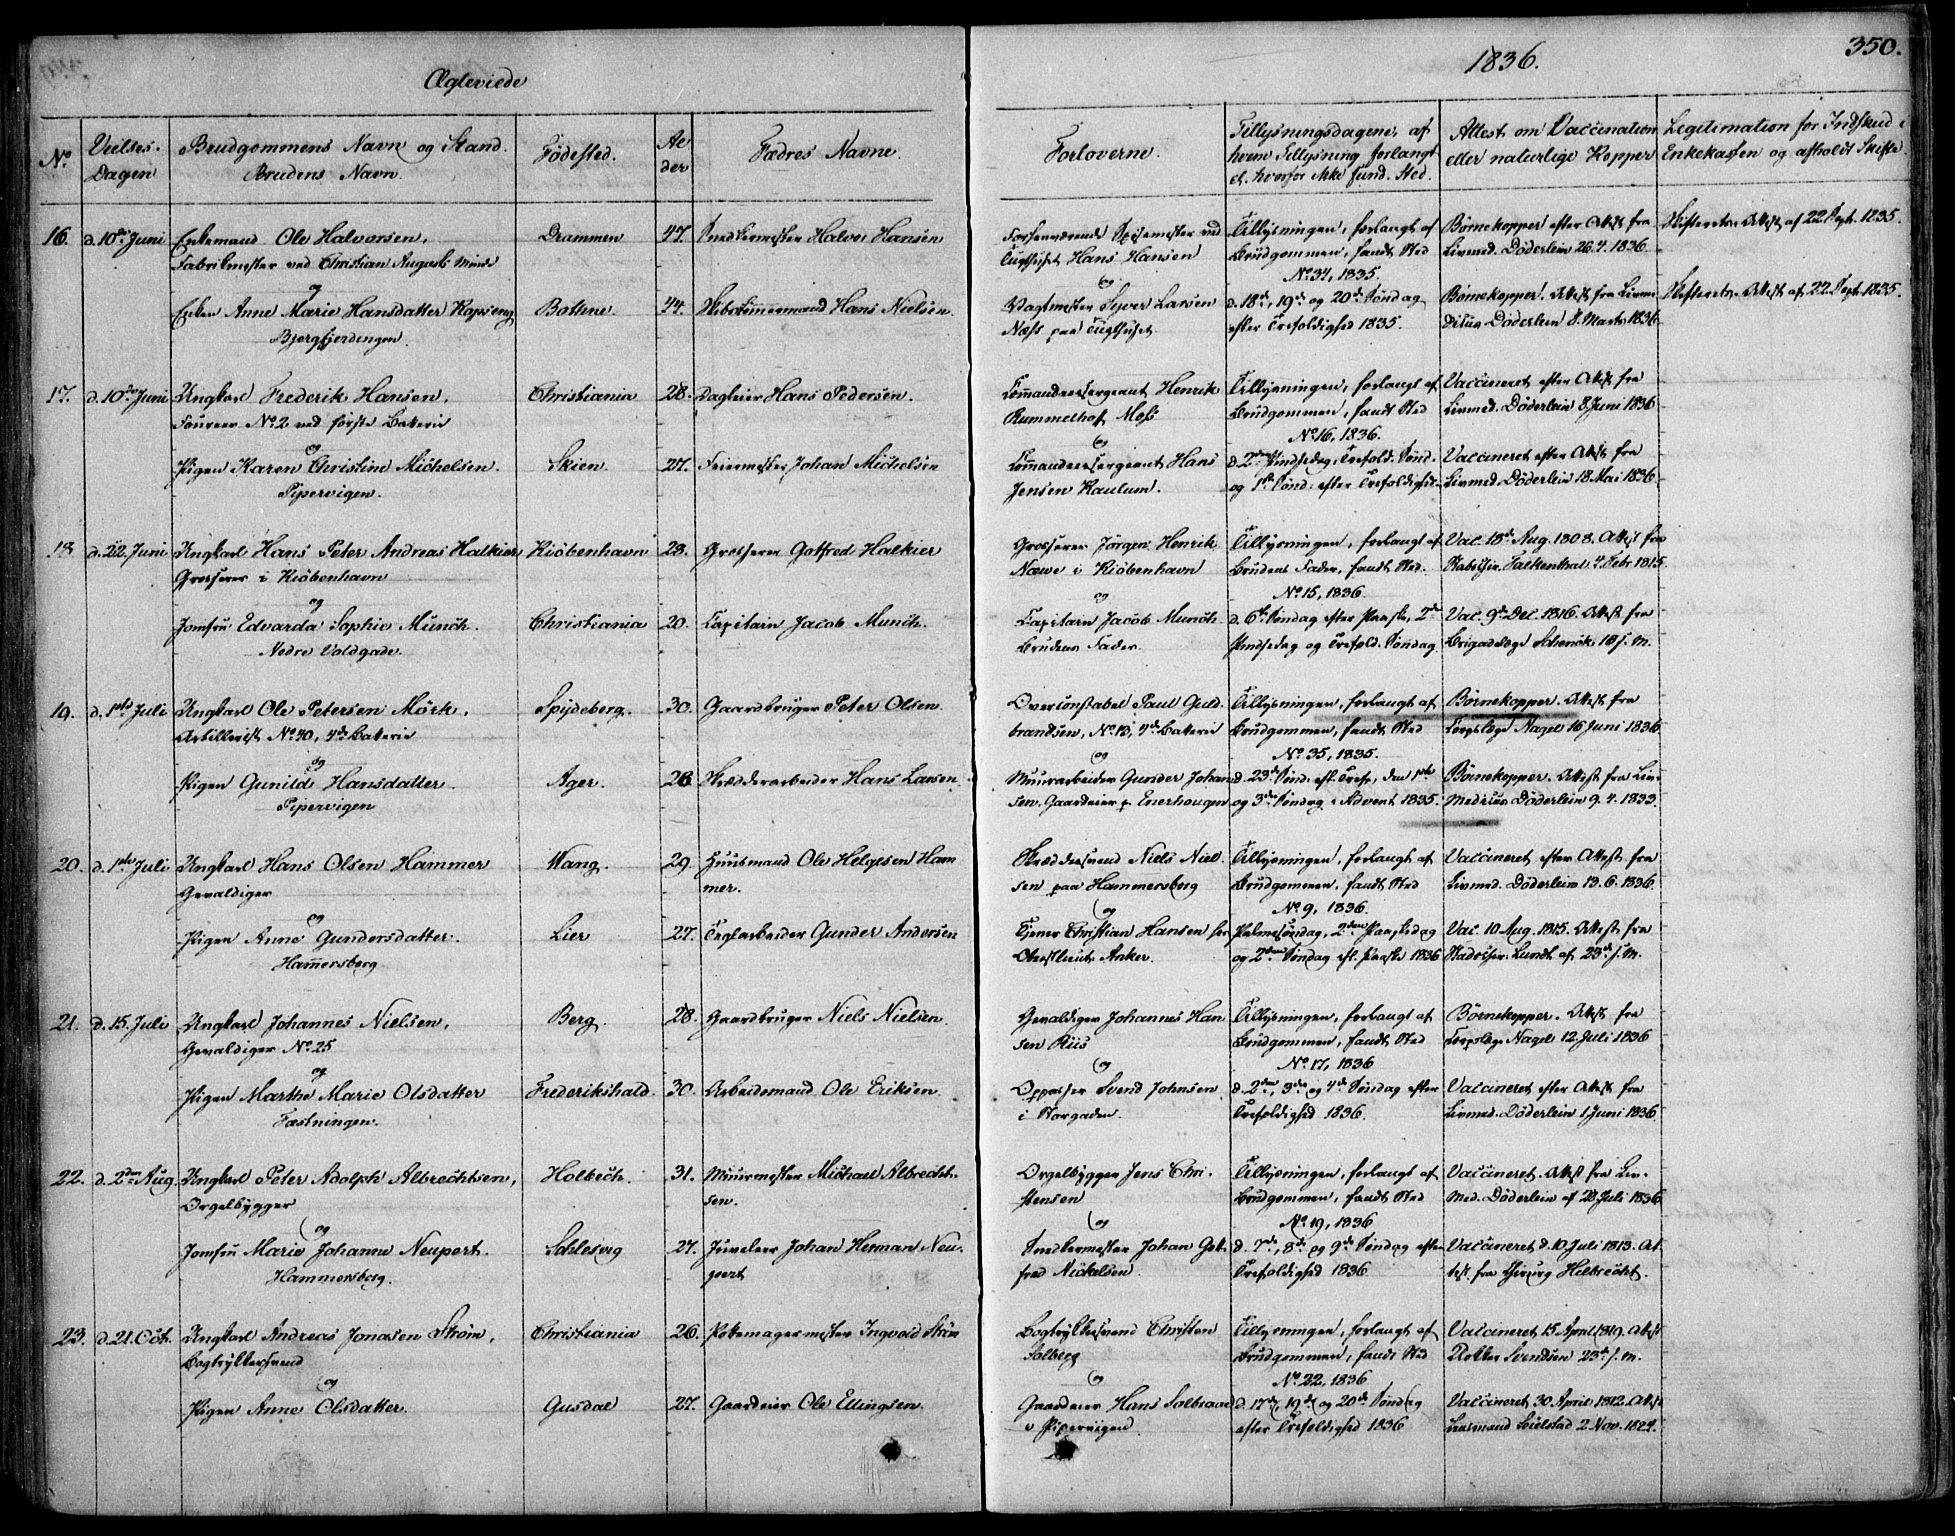 Ægteviede
1836.
350.
No.
Vielses-
Dagen
Brudgommens Navn og Stand.
Brudens Navn.
Fødested.
Al
der
Fædres Navne.
Forloverne.
Tillysningsdagene, af
hvem Tillysning forlangt
el. hvorfor ikke fund. Sted.
Attest om Vaccination
eller naturlige Kopper
Legitimation for Indskud i
Enkekassen og afholdt Skifte
16. d. 10de Juni Enkemand Ole Halvorsen, Drammen 47. Snedkermester Halvor Hansen
Fabrikmester ved Christian Augusts Minde
og
Enken Anne Marie Hansdatter Kopseng Bothne. 44. Skibstømmermand Hans Nielsen.
Bjergfjerdingen.
Forhenværende Spisemester ved
Tugthuset Hans Hansen
og
Vagtmester Syver Larsen
Næss paa Tugthuset
Tillysningen, forlangt af
Brudgommen, fandt Sted
No. 34, 1835.
d. 18de, 19de og 20de Søndag
efter Trefoldighed 1835.
Børnekopper efter Attest fra
Livmed. Döderlein 26.4.1836.
Børnekopper. Attest fra Livme
dicus Döderlein 8. Marts 1836
Skifterets Attest af 22. Sept. 1835.
Skifterets Attest af 22. Sept. 1835.
17. d. 10de Juni Ungkarl Frederik Hansen, Christiania 28. Dagleier Hans Pedersen.
Fourer No. 2 ved første Batterie
og
Pigen Karen Christine Michelsen. Skien. 27. Feiermester Johan Michelsen
Pipervigen.
Commandeersergeant Henrik
Rummelhof Moss
og
Commandeersergeant Hans
Jensen Kaulum.
Tillysningen, forlangt af
Brudgommen, fandt Sted
No. 16, 1836.
d. 2den Pindsedag, Trefold. Sønd.
og 1ste Sønd. efter Trefoldighed.
Vaccineret efter Attest fra
Livmed. Döderlein 8 Juni 1836
Vaccineret efter Attest fra
Livmed. Döderlein 18 Mai 1836.
18 d. 22. Juni Ungkarl Hans Peter Andreas Halkier Kiöbenhavn 28. Grosserer Gotfred Halkier
Grosserer i Kiöbenhavn
og
Jomfru Edvarda Sophie Munch. Christiania 20. Capitain Jacob Munch.
Nedre Voldgade.
Grosserer Jörgen Henrik
Næwe i Kiöbenhavn
og
Capitain Jacob Munch
Brudens Fader.
Tillysningen, forlangt af
Brudens Fader, fandt Sted.
No. 15, 1836
d. 6te Søndag efter Paaske, 2den
Pindsedag og Trefold. Søndag
Vac. 18de Aug. 1808. Attest fra
Stabschir. Falkenthal 4. Febr. 1815.
Vac. 9de Dec. 1816. Attest fra
Brigadelæge Schenck 18 s. M.
19. d. 1ste Juli Ungkarl Ole Petersen Mörk, Spydeberg. 30. Gaardbruger Peter Olsen
Artillerist No. 40, 4de Batterie
og
Pigen Gunild Hansdatter. Ager. 26 Skrædderarbeider Hans Larsen
Pipervigen
Overconstabel Paul Guld-
brandsen, No. 13, 4de Batterie
og
Muurarbeider Gunder Johan-
sen, Gaardeier p. Enerhougen
Tillysningen, forlangt af
Brudgommen, fandt Sted
No. 35, 1835.
d. 23de Sønd. eft. Tref., den 1ste
og 3die Søndag i Advent 1835.
Børnekopper. Attest fra
Corpslæge Nagel 16 Juni 1836
Børnekopper. Attest fra Liv-
medicus Döderlein 9.4.1833.
20. d. 1ste Juli Ungkarl Hans Olsen Hammer Wang. 29. Huusmand Ole Helgesen Ham
Gevaldiger mer.
og
Pigen Anne Gundersdatter. Lier 27. Teglarbeider Gunder Andersen
Hammersberg
Skræddersvend Niels Niel-
sen paa Hammersberg
og
Tjener Christian Hansen hos
Oberstlieut. Anker.
Tillysningen, forlangt af
Brudgommen, fandt Sted
No. 9, 1836.
Palmesøndag, 2den Paaskedag
og 2den Søndag eft. Paaske 1836
Vaccineret efter Attest fra
Livmed. Döderlein 13.6.1836.
Vac. 10 Aug. 1815. Attest fra
Stadschir. Lundt af 23de s. M.
21. d. 15. Juli Ungkarl Johannes Nielsen, Berg. 28. Gaardbruger Niels Nielsen
Gevaldiger No. 25
og
Pigen Marthe Marie Olsdatter Frederikshald. 30. Arbeidsmand Ole Eriksen.
Fæstningen.
Gevaldiger Johannes Han
sen Riis
og
Oppasser Svend Johnsen
i Storgaden.
Tillysningen, forlangt af
Brudgommen, fandt Sted
No. 17, 1836
d. 2den, 3die og 4de Søndag efter
Trefoldighed 1836.
Børnekopper. Attest fra
Corpslæge Nagel 12 Juli 1836
Vaccineret efter Attest fra
Livmed. Döderlein 1 Juni 1836
22. d. 2den Aug. Ungkarl Peter Adolph Albrechtsen, Holbech. 31. Muurmester Michael Albrecht-
Orgelbygger sen.
og
Jomfru Marie Johanne Neupert. Schlesvig 27. Juveleer Johan Herman Neu-
Hammersberg. pert
Orgelbygger Jens Chri-
stensen
og
Snedkermester Johan Got-
fred Nickelsen
Tillysningen, forlangt af
Brudgommen, fandt Sted
No. 19, 1836
d. 7de, 8de og 9de Søndag efter
Trefoldighed 1836
Vaccineret. Attest fra Liv-
med. Döderlein af 28 Juli 1836
Vaccineret d. 10 Juli 1813. At-
test fra Chirurg Helbrecht.
23. d. 21. Oct. Ungkarl Andreas Jonasen Ström, Christiania 26. Pottemagermester Ingvold Ström
Bogtrykkersvend
og
Pigen Anne Olsdatter. Gusdal 27. Gaardeier Ole Ellingsen.
Bogtrykkersvend Christen
Solberg
og
Gaardeier Hans Solbraae
i Pipervigen
Tillysningen, forlangt af
Brudgommen, fandt Sted
No. 22, 1836
d. 17de, 19de og 20de Søndag
efter Trefoldighed 1836
Vaccineret 15 April 1819. Attest
Rektor Svendsen 23de s. M.
Vaccineret 30 April 1812. Attest
2 Nov. 1824.